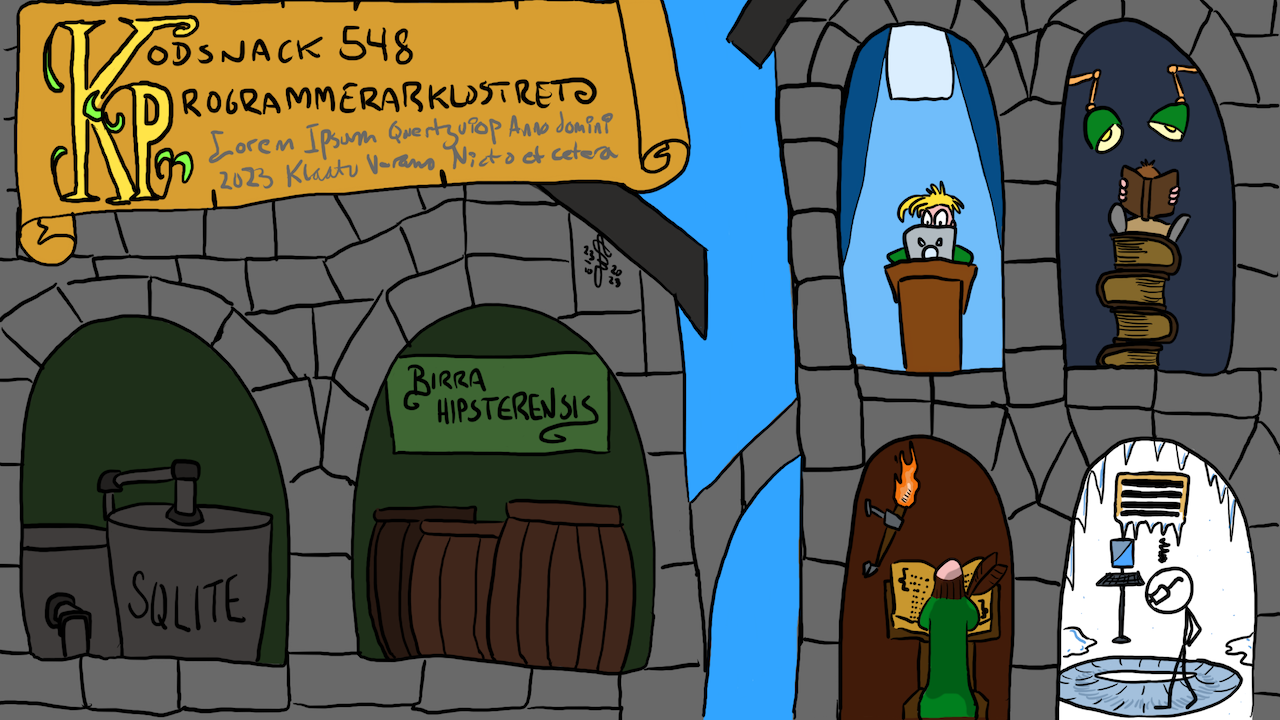 KODSNACK 548
PROGRAMMERARKLOSTRET
Lorem Ipsum Qwertyuiop Anno domini
2023 Klaatu Verano Nicto et cetera
BIRRA
HIPSTERENSIS
SQLITE